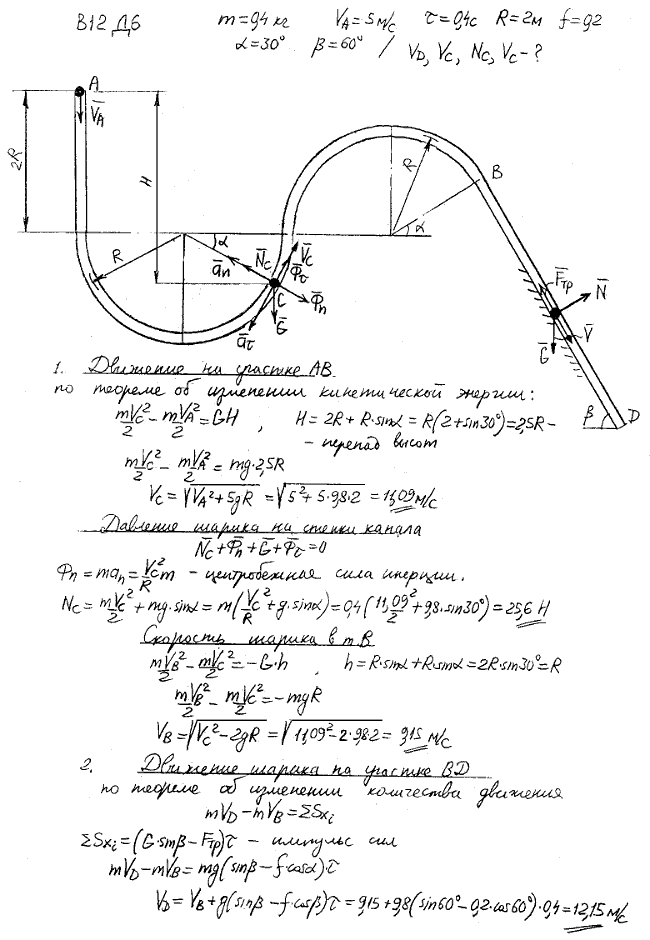 В12 Д6 m=0,4 кг V_A=5 м/с τ=0,4с R=2м f=0,2
α=30° β=60° / V_D, V_C, N_C, V_C - ?
A
V̄_A
2R
H
R
α
ā_n
N̄_C
V̄_C
Φ̄_τ
C
Φ̄_n
Ḡ
ā_τ
R
α
B
F̄_тр
N̄
V̄
Ḡ
β
D
1. Движение на участке АВ
по теореме об изменении кинетической энергии:
mV_C²/2 - mV_A²/2 = GH , H = 2R + R·sinα = R(2+sin30°) = 2,5R -
- перепад высот
mV_C²/2 - mV_A²/2 = mg·2,5R
V_C = √(V_A²+5gR) = √(5²+5·9,8·2) = 11,09 м/с
Давление шарика на стенки канала
N̄_C + Φ̄_n + Ḡ + Φ̄_τ = 0
Φ_n = ma_n = V_C²/R m - центробежная сила инерции.
N_C = mV_C²/2 + mg·sinα = m(V_C²/R + g·sinα) = 0,4(11,09²/2 + 9,8·sin30°) = 25,6 Н
Скорость шарика в т.В
mV_B²/2 - mV_C²/2 = -G·h , h = R·sinα + R·sinα = 2R·sin30° = R
mV_B²/2 - mV_C²/2 = -mgR
V_B = √(V_C²-2gR) = √(11,09²-2·9,8·2) = 9,15 м/с
2. Движение шарика на участке BD
по теореме об изменении количества движения
mV_D - mV_B = ΣSx_i
ΣSx_i = (G·sinβ - F_тр)τ - импульс сил
mV_D - mV_B = mg(sinβ - f·cosα)·τ
V_D = V_B + g(sinβ - f·cosβ)τ = 9,15 + 9,8(sin60° - 0,2·cos60°)·0,4 = 12,15 м/с